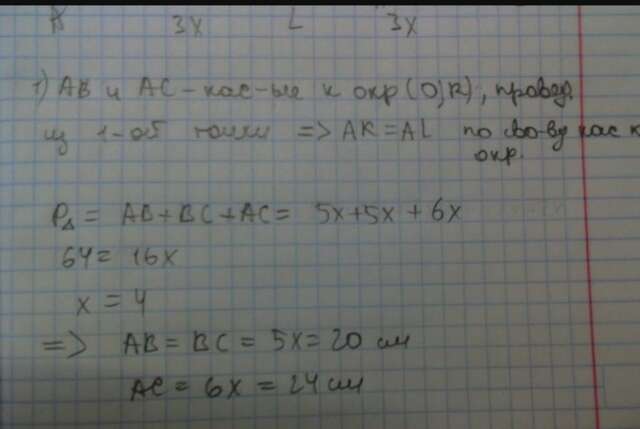 A 3x L 3x
1) AB и AC - кас-ые к окр (O;R), провед.
из 1-ой точки => AK = AL по св-ву кас к
окр.
P△ = AB + BC + AC = 5x + 5x + 6x
64 = 16x
x = 4
=> AB = BC = 5x = 20 см
AC = 6x = 24 см